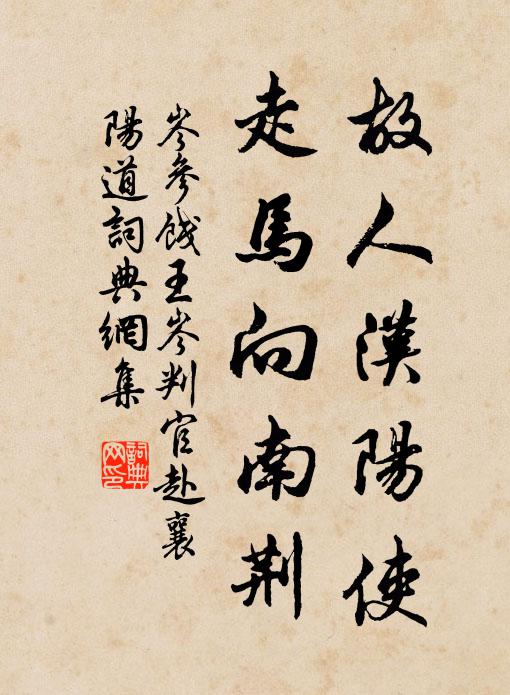 故人漢陽使
走馬向南荆
岑參餞王岑判官赴襄
陽道詞典網集
詞典網印